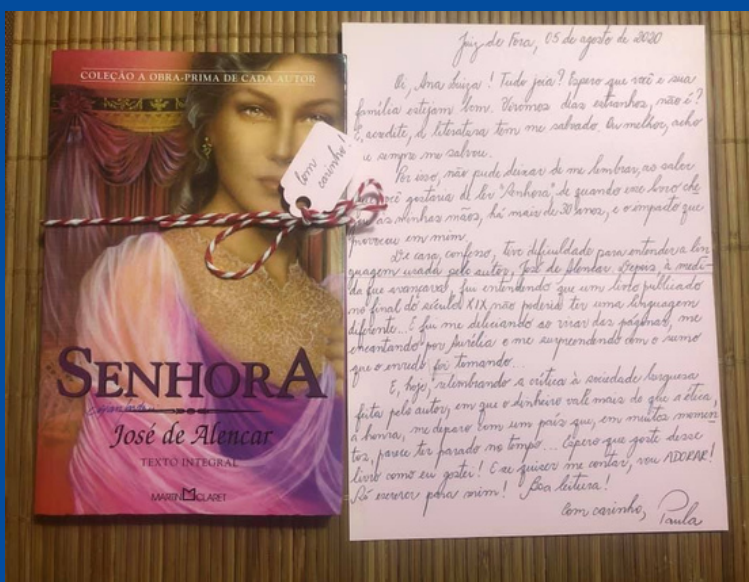 COLEÇÃO A OBRA-PRIMA DE CADA AUTOR
Com
carinho!
SENHORA
José de Alencar
TEXTO INTEGRAL
MARTIN CLARET
Juiz de Fora, 05 de agosto de 2020
Oi, Ana Luiza! Tudo joia? Espero que você e sua
família estejam bem. Vivemos dias estranhos, não é?
E, acredite, a literatura tem me salvado. Ou melhor, acho
que sempre me salvou.
Por isso, não pude deixar de me lembrar, ao saber
você gostaria de ler "Senhora", de quando esse livro che
às minhas mãos, há mais de 30 anos, e o impacto que
provocou em mim.
De cara, confesso, tive dificuldade para entender a lin
guagem usada pelo autor, José de Alencar. Depois, à medi-
da que avançava, fui entendendo que um livro publicado
no final do século XIX não poderia ter uma linguagem
diferente... E fui me deliciando ao virar das páginas, me
encantando por Aurélia e me surpreendendo com o rumo
que o enredo foi tomando...
E, hoje, relembrando a crítica à sociedade burguesa
feita pelo autor, em que o dinheiro vale mais do que a ética,
a honra, me deparo com um país que, em muitos momen
tos, parece ter parado no tempo... Espero que goste desse
livro como eu gostei! E se quiser me contar, vou ADORAR!
Só escrever para mim! Boa leitura!
Com carinho,
Paula